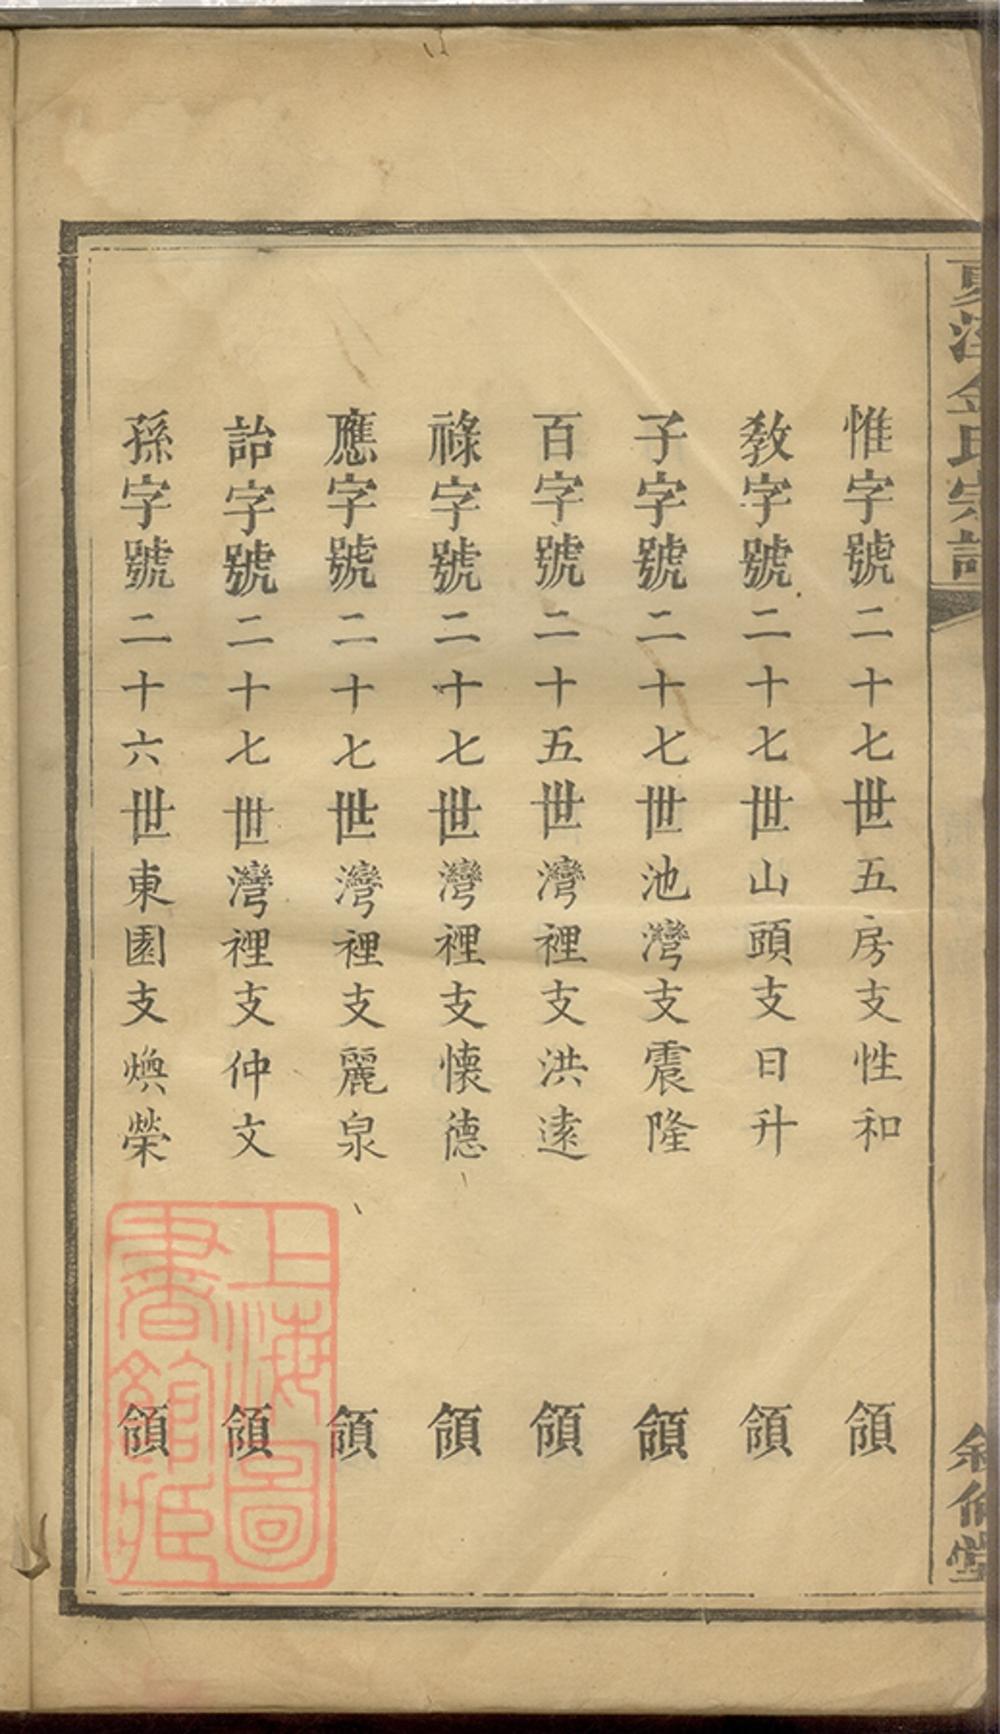 金氏宗譜
惟字號二十七世五房支性和 領
教字號二十七世山頭支日升 領
子字號二十七世池灣支震隆 領
百字號二十五世灣裡支洪遠 領
祿字號二十七世灣裡支懷德 領
應字號二十七世灣裡支麗泉 領
詒字號二十七世灣裡支仲文 領
孫字號二十六世東園支煥榮 領
上海圖
書館藏